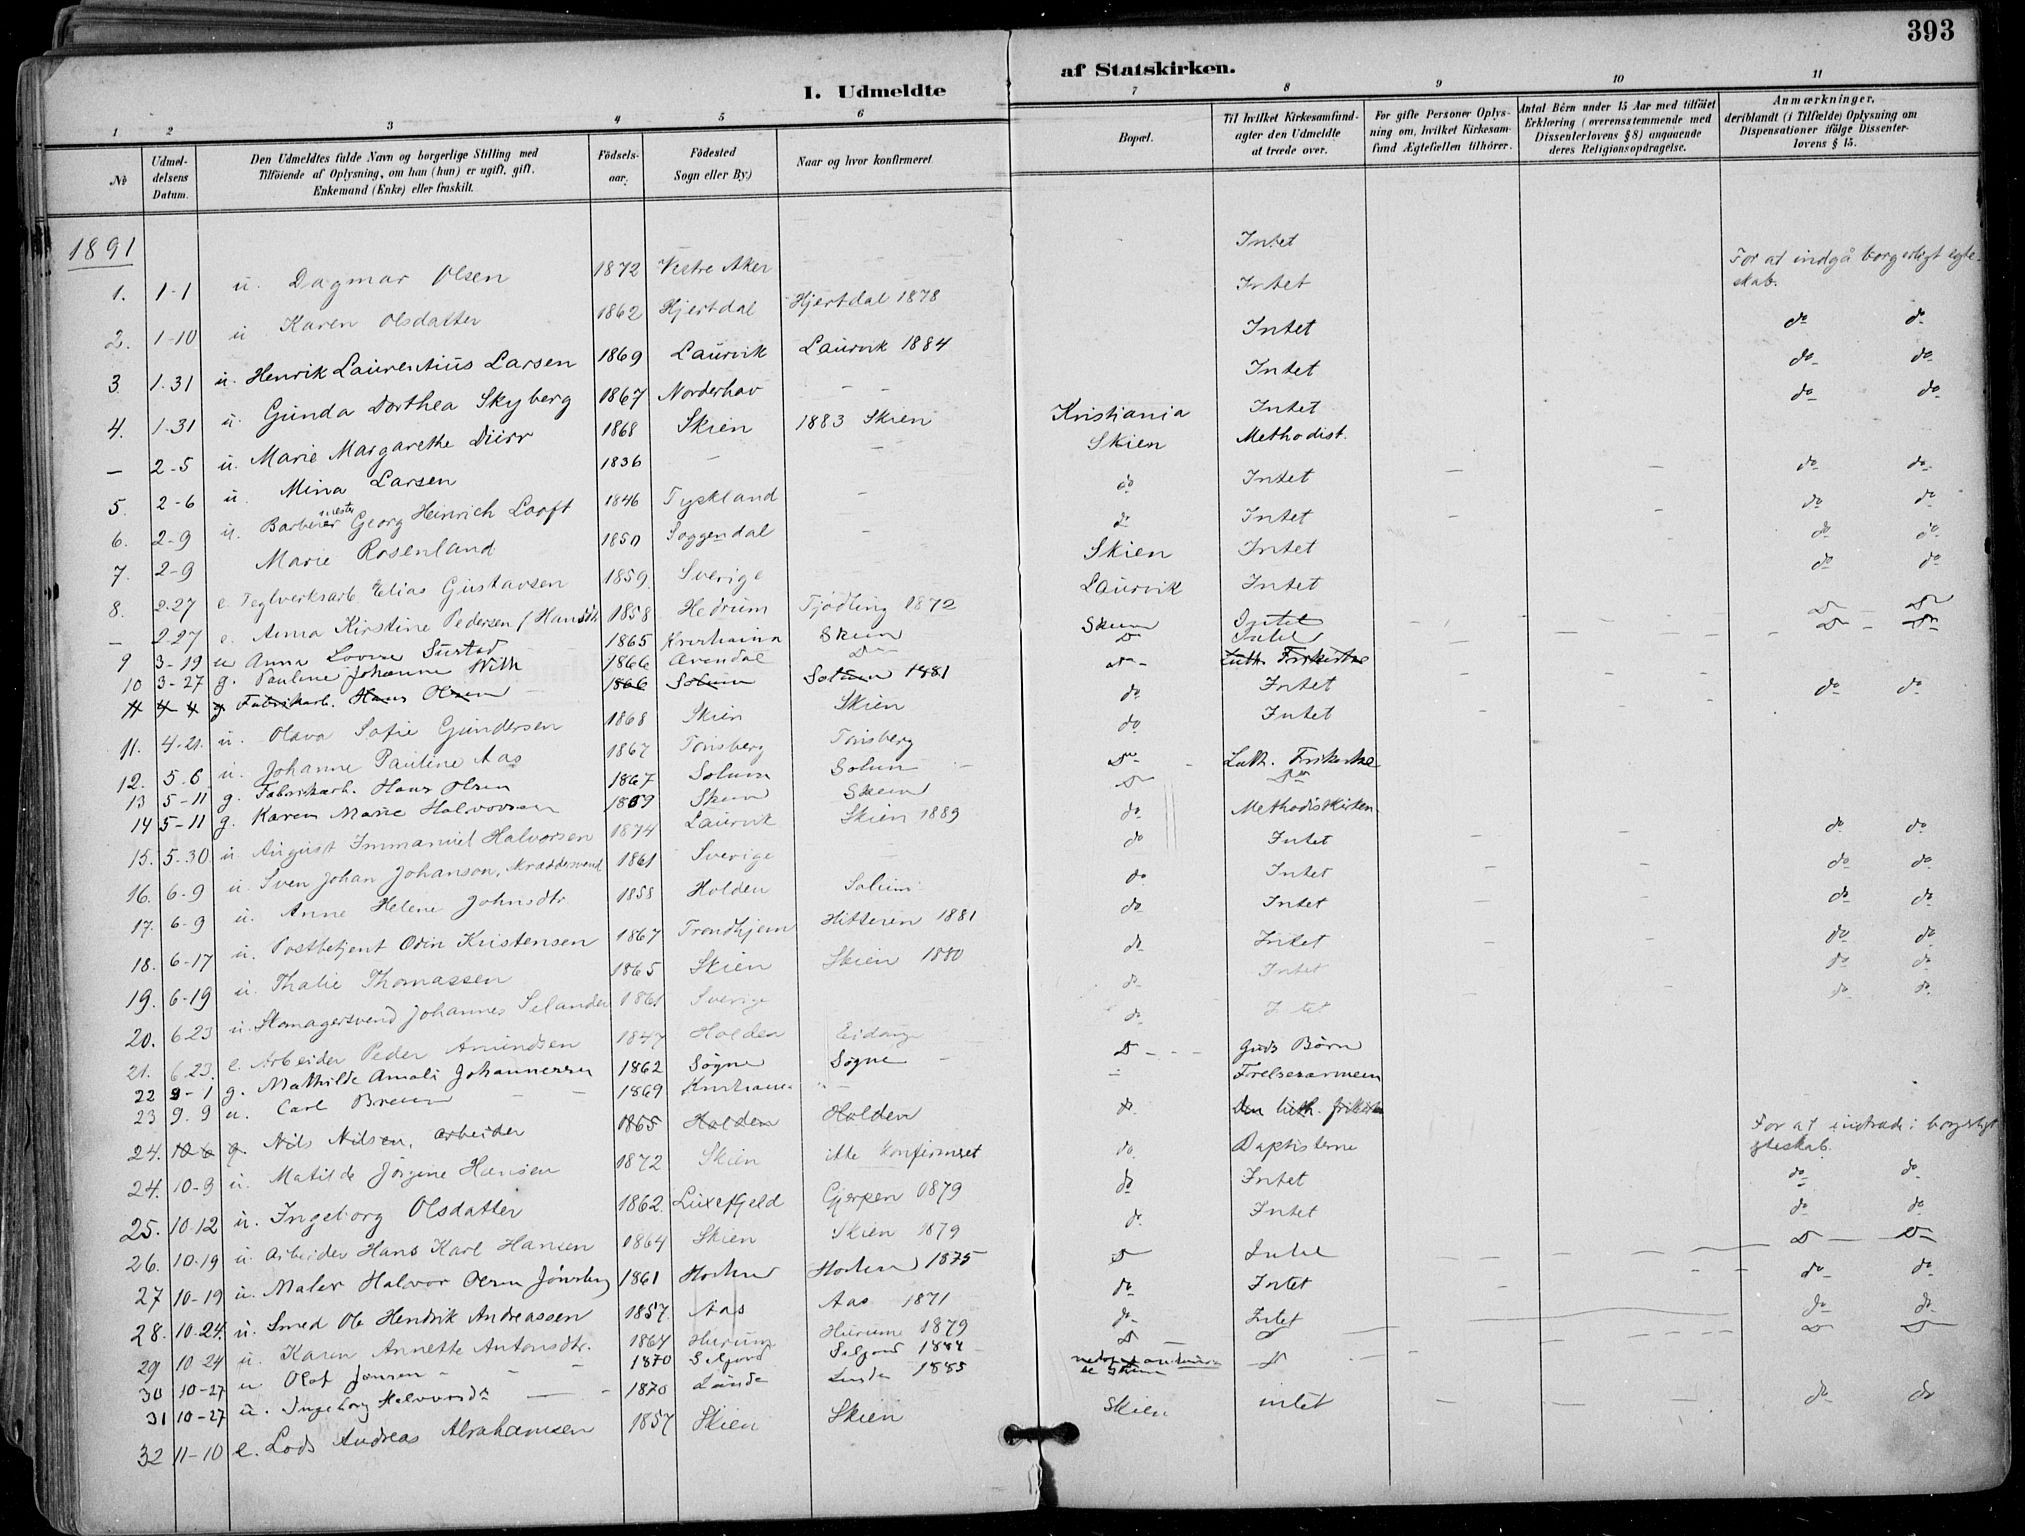 393
1. Udmeldte
af Statskirken.
1 2 3 4 5 6 7 8 9 10 11
No
Udmel-
delsens
Datum.
Den Udmeldtes fulde Navn og borgerlige Stilling med
Tilføiende af Oplysning, om han (hun) er ugift, gift,
Enkemand (Enke) eller fraskilt.
Fødsels-
aar.
Fødested
Sogn eller By.)
Naar og hvor konfirmeret
Bopæl.
Til hvilket Kirkesamfund
agter den Udmeldte
at træde over.
For gifte Personer Oplys-
ning om, hvilket Kirkesam-
fund Ægtefællen tilhører.
Antal Børn under 15 Aar med tilføiet
Erklæring (overensstemmende med
Dissenterlovens § 8) angaaende
deres Religionsopdragelse.
Anmærkninger,
deriblandt (i Tilfælde) Oplysning om
Dispensationer ifølge Dissenter-
lovens § 15.
1891
1. 1-1 u. Dagmar Olsen 1872 Vestre Aker Intet For at indgå borgerligt egte-
skab.
2. 1-10 u Karen Olsdatter 1862 Hjertdal Hjertdal 1878 Intet do do
3. 1.31 u. Henrik Laurentius Larsen 1869 Laurvik Laurvik 1884 Intet do do
4. 1-31 u. Gunda Dorthea Skyberg 1867 Norderhov - - Intet do do
- 2-5 u. Marie Margarethe Dürr 1868 Skien 1883 Skien Kristiania Intet
5. 2-6 u. Mina Larsen 1836 - - Skien Methodist.
6. 2-9 u. Barbermester Georg Heinrich Looft 1846 Tyskland - do Intet do do
7. 2-9 Marie Rosenland 1850 Soggendal - do Intet do do
8. 2-27 e. Teglverksarb. Elias Gustavsen 1859 Sverige Skien Intet do do
- 2-27 e. Anna Kirstine Pedersen 1858 Hedrum Tjødling 1872 Laurvik Intet do do
9 3-19 u Anna Lovise 1865 Kristiania Skien Skien Intet Do Do
10 3-27 g. Pauline Johanne With 1866 Arendal Do Do Intet Do Do
11 4-4 g Fabrikarb. Hans Olsen 1866 Solum Solum 1881 Do Luth. Frikirke
11. 4-21. u. Olava Sofie Gundersen 1868 Skien Skien do Intet do do
12. 5.6. u. Johanne Pauline Aas 1867 Tønsberg Tønsberg do Intet
13 5-11 g. Fabrikarb. Hans Olsen 1867 Solum Solum Do Luth. Frikirke
14 5-11 g. Karen Marie Halvorsen 1869 Skien Skien Do Do
15. 5-30 u August Immanuel Halvorsen 1874 Laurvik Skien 1889 do Methodistkirken
16. 6-9 u. Sven Johan Johanson, skræddersvend 1861 Sverige - do Intet do do
17. 6-9 u. Anne Helene Johnsdtr 1858 Holden Solum do Intet do do
18. 6-17 u. Postbetjent Odin Kristensen 1867 Trondhjem Hitteren 1881 do Intet do do
19. 6-19 u. Thalie Thomassen 1865 Skien Skien 1880 do Intet do do
20. 6.23 u. Skomagersvend Johannes Selander 1861 Sverige do Intet do do
21. 6.23. e. Arbeider Peder Amundsen 1847 Holden Eidanger do Intet do do
22 9-1 g. Mathilde Amalie Johannessen 1862 Søgne Søgne Do Guds Børn
23 9.9 u. Carl Breuer 1869 Kristiania Frelsesarmeen
24. 10-6 g. Nils Nilsen, arbeider 1865 Holden Holden do Den luth. frikirke
24. 10-9 u. Matilde Jørgine Hansen 1872 Skien ikke konfirmeret do Baptisterne
25. 10-12 u. Ingeborg Olsdatter 1862. Luxefjeld Gjerpen 1879 do Intet For at indtræde i borgerligt
gteskab. do do
26. 10-19 u. Arbeider Hans Karl Hansen 1864 Skien Skien 1879 do Intet do do
27 10-19 u. Maler Halvor Olsen 1861 Horten Horten 1875 Do Intet Do Do
28. 10-24. u. Smed Ole Hendrik Andreassen 1857 Aas Aas 1871 do Intet do do
29 10-24 u. Karen Annette Antonsdtr. 1864 Hurum Hurum 1879 do Intet do do
30 10-27 u Olaf Jonsen 1870 Seljord Seljord 1884 Do Do Do Do
31 10-27 u. Ingeborg Halvorsdtr 1870 Lunde Lunde 1885 Do
32 11-10 e. Lods Andreas Abrahamsen 1857 Skien Skien Skien intet do do